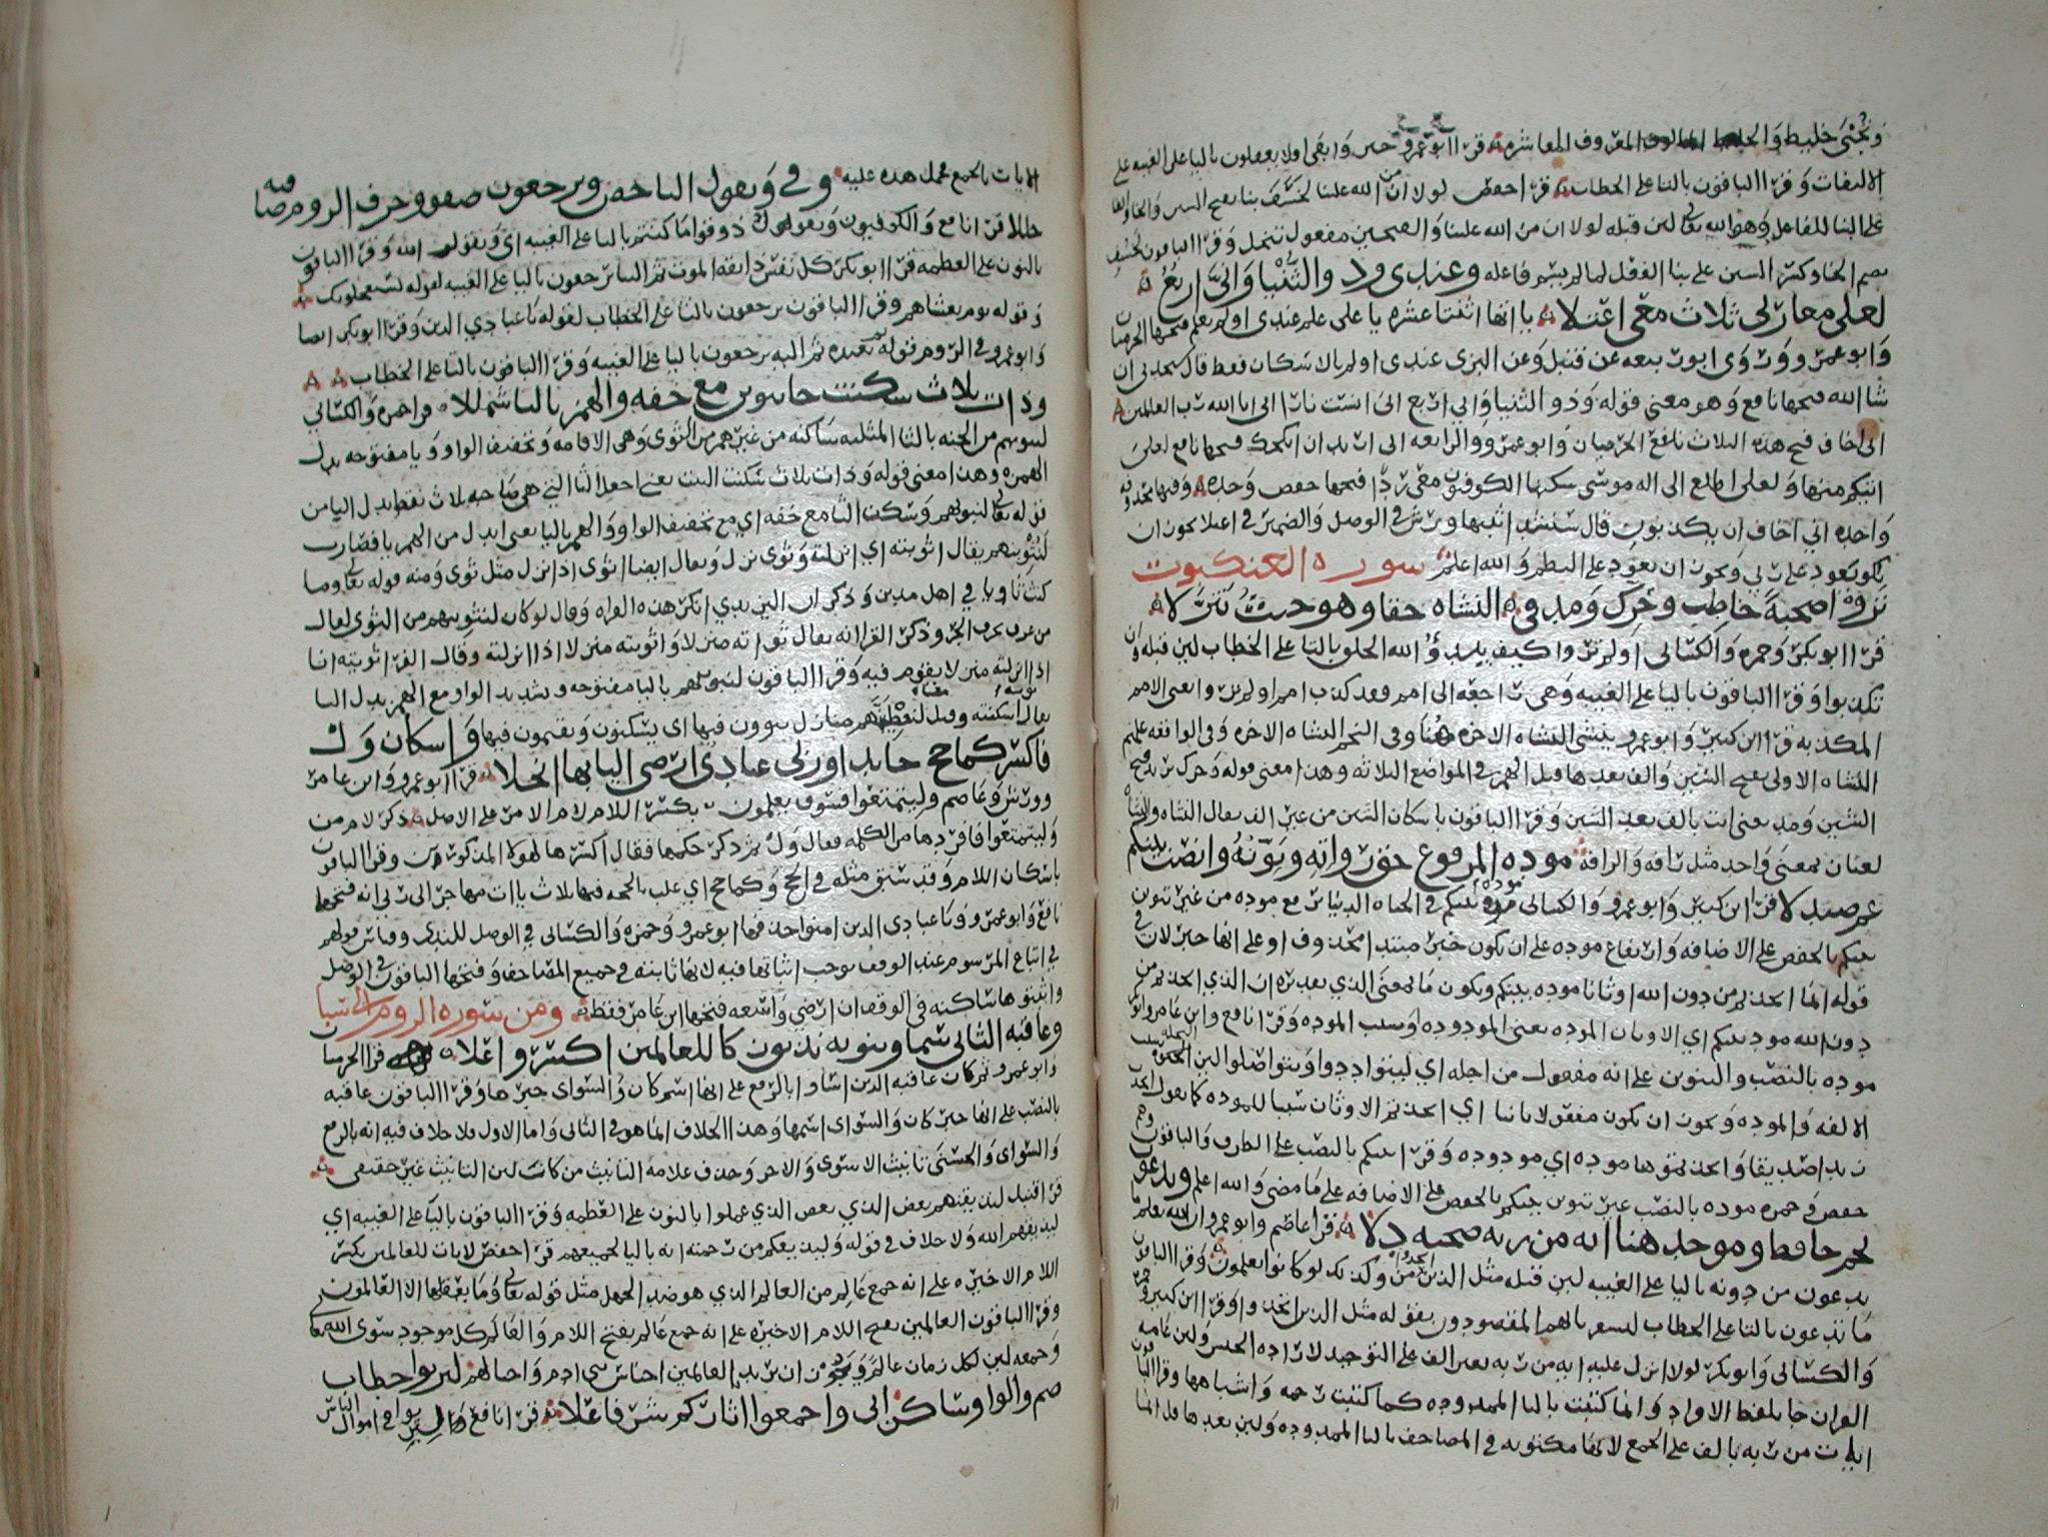 وَيُجْبَى خليط وَالخليط المالوف المعروف المعاشره قرا ابو عمرو خير وَابقى افلا يعقلون باليا على الغيبه على
الالتفات وَقرا الباقون بالتا على الخطاب قرا حفص لولا ان من الله علينا لخسف بنا بفتح السين وَالخا
على البنا للفاعل وَهو الله تعالى لان قبله لولا ان من الله علينا وَالصحبي مفعول تنخل وَقرا الباقون لخسف
بضم الخا وكسر السين على بنا الفعل لما لم يسم فاعله وعندى وذو الثُّنْيَا وَانِّي اربعُ
لعلى معا ربي ثلاث معى اعتلا ياءاتها اثنتا عشره ياء على علم عندى اولم يعلم فتحها الحرميان
وَابو عمرو وَرَوَى ابو ربيعه عن قنبل وَعن البزى عندى اولم بالاسكان فقط قال ستجدنى ان
شا الله فتحها نافع وَهو معنى قوله وَذو الثنيا وَانى اربع انى انست نارا انى انا الله رب العالمين
انى اخاف فتح هذه الثلاث نافع الحرميان وَابو عمرو وَالرابعه انى اريد ان انكحك فتحها نافع لعلى
اتيكم منها وَلعلى اطلع الى اله موسى سكنها الكوفيون معى ردًا فتحها حفص وَحده وَفيها محذوفه
وَاحده انى اخاف ان يكذبون قال سنشد اثبتها ورش فى الوصل وَالضمير فى اعتلا يجوز ان
يكون يعود على ربى وَيجوز ان يعود على النظم وَالله اعلم سوره العنكبوت
تروا صحبةٌ خاطب وحرك ومد فى النشاه حقا وهو حيث تنزلا
قرا ابو بكر وَحمزه وَالكسائى اولم تروا كيف يبدؤُ الله الخلق بالتا على الخطاب لان قبله وَان
تكذبوا وَقرا الباقون باليا على الغيبه وَهى راجعه الى امم فقد كذب امم اولم يروا يعنى الامم
المكذبه قرا ابن كثير وَابو عمرو ينشى النشاه الاخره هُنَا وفى النجم النشاه الاخره وَفى الواقعه علمتم
النشاه الاولى بفتح الشين وَالف بعدها قبل الهمز فى المواضع الثلاثه وهذا معنى قوله وَحرك يريد فتح
الشين وَمد يعنى ائت بالف بعد الشين وَقرا الباقون باسكان الشين من غير الف يقال النشاه والنشأه
لغتان بمعنى وَاحد مثل رافه وَالرافه موده المرفوع حق رواتِه ونَوِّنْهُ وانصب بينكم
عم صندلا قرا ابن كثير وَابو عمرو وَالكسائى موده بينكم فى الحياه الدنيا برفع موده من غير تنوين
بينكم بالخفض على الاضافه وَارتفاع موده على ان يكون خبر مبتدا محذوف او على انها خبر لان فى
قوله انما اتخذتم من دون الله اوثانا موده بينكم ويكون ما بمعنى الذى تقديره ان الذى اتخذتم من
دون الله موده بينكم اى الاوثان الموده بمعنى المودوده او سبب الموده وَقرا نافع وابن عامر وابو بكر
موده بالنصب والتنوين على انه مفعول من اجله اى ليتوادوا وَيتواصلوا لان المحبه تجلب
الالفه وَالموده وَيجوز ان يكون مفعولا ثانيا اى اتخذتم الاوثان سببا للموده كما تقول اتخذت
زيدا صديقا وَاتخذتموها موده اى مودوده وَقرا بينكم بالنصب على الظرف وَالباقون وَهم
حفص وَحمزه موده بالنصب غير تنوين بينكم بالخفض على الاضافه على ما مضى وَالله اعلم ويدعون
نجم حافظ وموحد هنا ايه من ربه صحبه دلا قرا عاصم وابو عمرو ان الله يعلم ما
يدعون من دونه باليا على الغيبه لان قبله مثل الذين اتخذوا من وكذلك لو كانوا يعلمون وَقرا الباقون
ما تدعون بالتا على الخطاب ليشعر بانهم المقصودون بقوله مثل الذين اتخذوا وَقرا ابن كثير وَحمزه
وَالكسائى وَابو بكر لولا انزل عليه ايه من ربه بغير الف على التوحيد لاراده الجنس وَلان عامه
القران جا بلفظ الافراد وَانما كتبت بالتا الممدوده كما كتبت رحمه وَاشباهها وقرا الباقون
ايات من ربه بالف على الجمع لانها مكتوبه فى المصاحف بالتا الممدوده وَلان بعدها قل انما
الايات بالجمع فحمل هذه عليه وفى وَيقول الياء حصن ويرجعون صفو وحرف الروم صافيه
حللا قرا نافع وَالكوفيون وَيقول ذوقوا ما كنتم باليا على الغيبه اى وَيقول الله وَقرا الباقون
بالنون على العظمه قرا ابو بكر كل نفس ذايقه الموت ثم الينا يرجعون باليا على الغيبه لقوله يستعجلونك
وَقوله يوم يغشاهم وقرا الباقون ترجعون بالتا على الخطاب لقوله يا عبادى الذين وَقرا ابو بكر ايضا
وَابو عمرو فى الروم قوله ثم يعيده ثم اليه يرجعون باليا على الغيبه وَقرا الباقون بالتا على الخطاب
وذات ثلاث سكنت با نبوئن مع خفه والهمز بالياء شمللا قرا حمزه وَالكسائى
لنثوينهم من الجنه بالثا المثلثه ساكنه من غير همز من الثوى وَهى الاقامه وَتخفيف الواو وَيا مفتوحه بدل
الهمزه وهذا معنى قوله وَذات ثلاث سكنت البيت يعنى اجعل الثا التى هى صاحبه ثلاث نقط بدل اليا من
قوله تعالى لنبوئنهم وَسكن الثا مع خفه اى مع تخفيف الواو وَالهمز باليا يعنى ابدل من الهمز يا فصارت
لَنُثْوِيَنهم يقال اثويته اى انزلته وَثوى نزل وَيقال ايضا اثوى اذا نزل مثل ثوى وَمنه قوله تعالى وَما
كنت ثاويا فى اهل مدين وَذكر ان اليزيدى انكر هذه القراه وقال لو كان لنثوينهم من الثوى لقال
اذا انزلته منزلا يقوم فيه وَقرا الباقون لنبوئنهم باليا مفتوحه وشديد الواو مع الهمز بدل اليا
فاكسر كما حج جا ندا وربى عبادى ارضى اليا بها انجلا قرا ابو عمرو وَابن عامر
وورش وَعاصم وليتمتعوا فسوف يعلمون بكسر اللام لام الامر على الاصل ذكر لام من
وَليتمتعوا فافردها من الكلمه فقال وَل ثم ذكر حكمها فقال اكسرها لهولا المذكورين وقرا الباقون
باسكان اللام وَقد سبق مثله فى الحج وَكما حج اى غلب بالحجه فيها ثلاث ياات مهاجر الى ربى انه فتحها
نافع وَابو عمرو وَيا عبادى الذين امنوا حذفها ابو عمرو وَحمزه وَالكسائى فى الوصل للندا وقياس قولهم
فى اتباع المرسوم عند الوقف يوجب اثباتها فيه لانها ثابته فى جميع المصاحف وَفتحها الباقون فى الوصل
وَاثبتوها ساكنه فى الوقف ان ارضى وَاسعه فتحها ابن عامر فقط ومن سوره الروم الى سبا
وعاقبه الثانى سما وبنونه نذيق زكا للعالمين اكسروا علا قرا الحرميان
وابو عمرو ثم كان عاقبه الذين اساوا بالرفع على انها اسم كان وَالسواى خبرها وَقرا الباقون عاقبه
بالنصب على انها خبر كان وَالسواى اسمها وَهذا الخلاف انما هو فى الثانى وَاما الاول فلا خلاف فيه انه بالرفع
وَالسواى وَالحسنى تانيث الاسوى وَالاحسن وَحذف علامه التانيث من كان لان التانيث غير حقيقى
قرا قنبل لنذيقهم بعض الذى بعض الذى عملوا بالنون على العظمه وَقرا الباقون باليا على الغيبه اى
ليذيقهم الله وَلا خلاف فى قوله وَليذيقكم من رحمته انه باليا لجميعهم قرا حفص لايات للعالمين بكسر
اللام الاخيره على انه جمع عالم من العالم الذى هو ضد الجهل مثل قوله تعالى وَما يعقلها الا العالمون
وقرا الباقون العالمين بفتح اللام الاخيره على انه جمع عالم بفتح اللام وَالعالم كل موجود سوى الله تعالى
وَجمعه لان لكل زمان عالم وَيجوز ان يريد بالعالمين اجناس بنى ادم وَاحالهم ليربوا خطاب
ضم والواو ساكن اتى واجمعوا اثار كم شرفا علا قرا نافع وَما اتيتم من ربا لتربوا فى اموال الناس